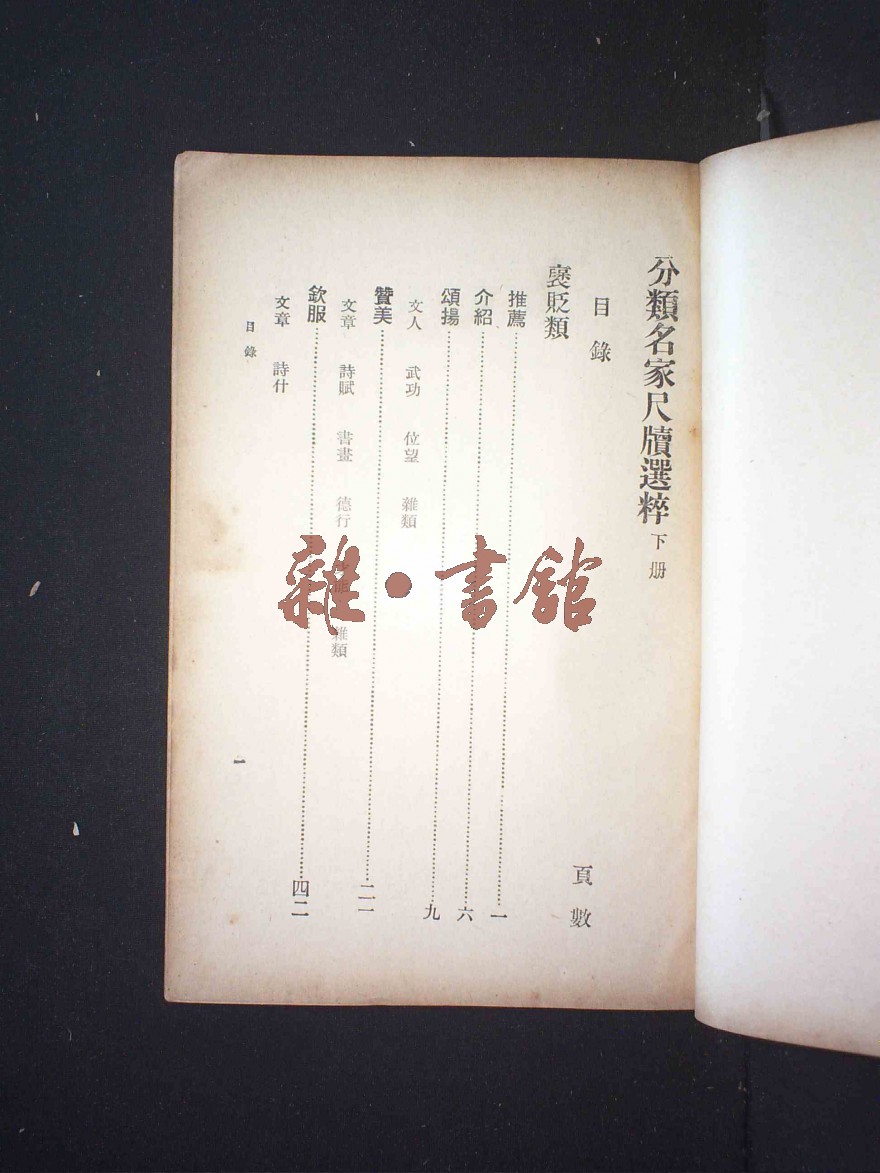 分類名家尺牘選粹 下册
目錄
頁數
褒貶類
推薦…………一
介紹…………六
頌揚…………九
文人 武功 位望 雜類
贊美…………二一
文章 詩賦 書畫 德行 雜類
欽服…………四二
文章 詩什
目錄
一
雜·書館